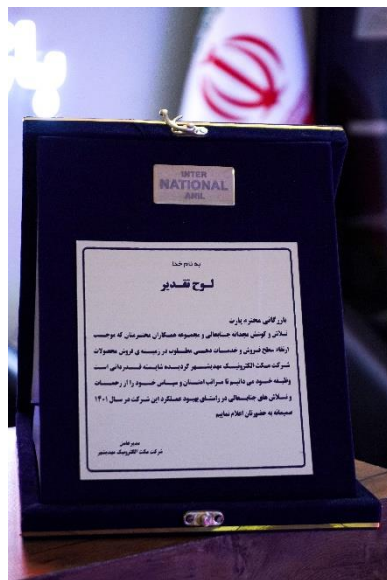 INTER
NATIONAL
ANIL
به نام خدا
لوح تقدیر
بازرگانی محترم پارت
تلاش و کوشش مجدانه جنابعالی و مجموعه همکاران محترمتان که موجب
ارتقاء سطح فروش و خدمات دهی مطلوب در زمینه ی فروش محصولات
شرکت مبکت الکترونیک مهدیشهر گردیده شایسته قدردانی است
وظیفه خود می دانیم تا مراتب امتنان و سپاس خود را از زحمات
و تلاش های جنابعالی در راستای بهبود عملکرد این شرکت در سال ۱۴۰۱
صمیمانه به حضورتان اعلام نماییم
مدیرعامل
شرکت مبکت الکترونیک مهدیشهر